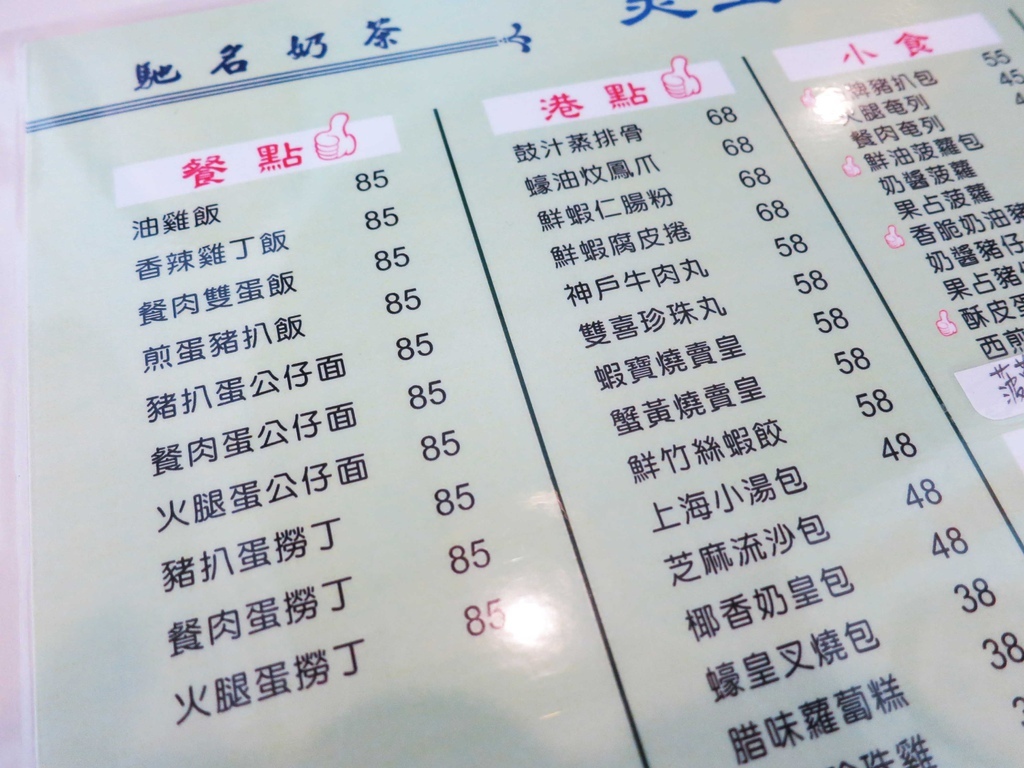 馳名奶茶
餐點
油雞飯 85
香辣雞丁飯 85
餐肉雙蛋飯 85
煎蛋豬扒飯 85
豬扒蛋公仔面 85
餐肉蛋公仔面 85
火腿蛋公仔面 85
豬扒蛋撈丁 85
餐肉蛋撈丁 85
火腿蛋撈丁 85
港點
鼓汁蒸排骨 68
蠔油炆鳳爪 68
鮮蝦仁腸粉 68
鮮蝦腐皮捲 68
神戶牛肉丸 58
雙喜珍珠丸 58
蝦寶燒賣皇 58
蟹黃燒賣皇 58
鮮竹絲蝦餃 58
上海小湯包 48
芝麻流沙包 48
椰香奶皇包 48
蠔皇叉燒包 38
腊味蘿蔔糕 38
珍珠雞
小食
牌豬扒包 55
火腿奄列 45
餐肉奄列
鮮油菠蘿包
奶醬菠蘿
果占菠蘿
香脆奶油豬
奶醬豬仔
果占豬
酥皮蛋
西煎
菠